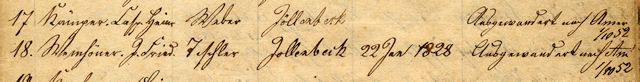 17 Künger. Casp. Heinr. Weber Jöllenbeck Ausgewandert nach Amer. 1/10 52
18. Wemhöner. J. Fried. Tischler Jollenbeck 22 Jan 1828 Ausgewandert nach Am 1/10 52